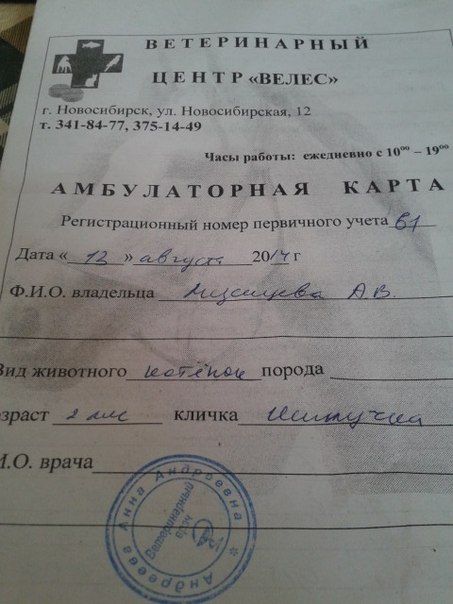 ВЕТЕРИНАРНЫЙ
ЦЕНТР «ВЕЛЕС»
г. Новосибирск, ул. Новосибирская, 12
т. 341-84-77, 375-14-49
Часы работы: ежедневно с 10⁰⁰ – 19⁰⁰
АМБУЛАТОРНАЯ КАРТА
Регистрационный номер первичного учета 61
Дата « 12 » августа 2014 г
Ф.И.О. владельца А.В.
Вид животного котёнок порода
зраст 2 мес кличка
И.О. врача
Андреева Анна Андреевна
Ветеринарный
врач